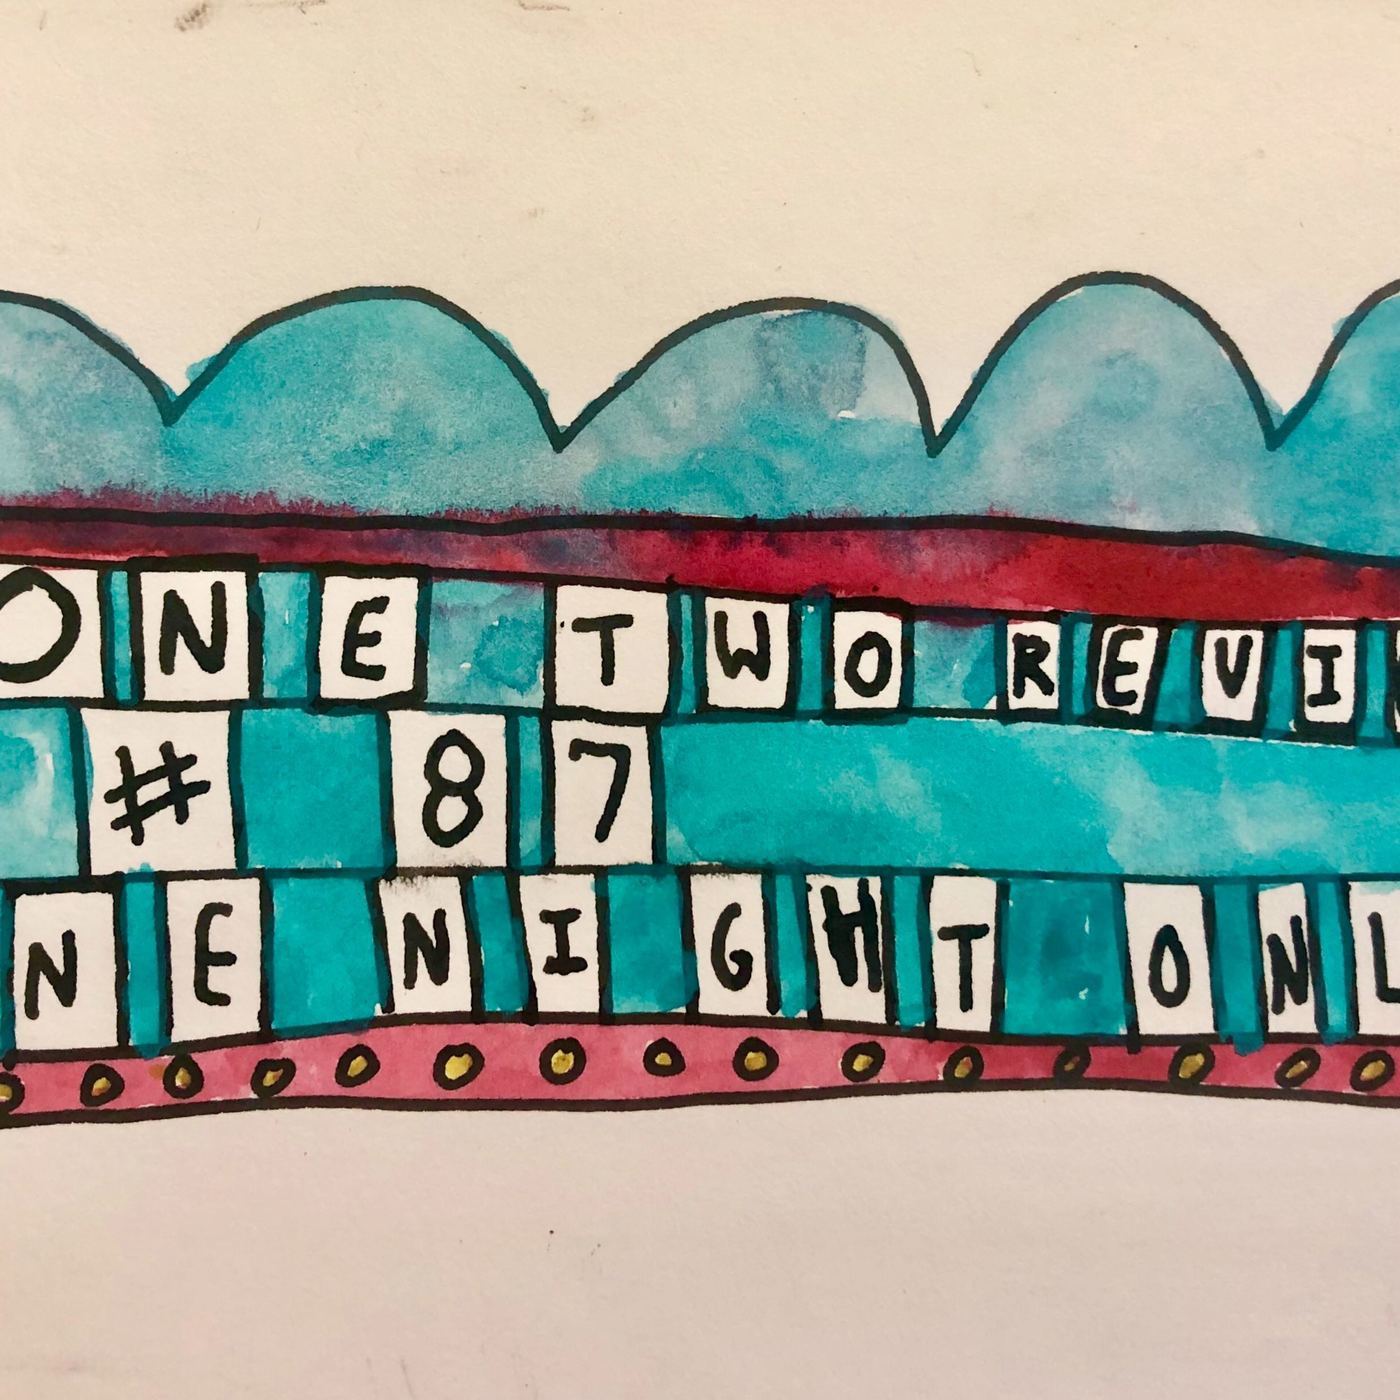 ONE TWO REVI
# 87
NE NIGHT ONL